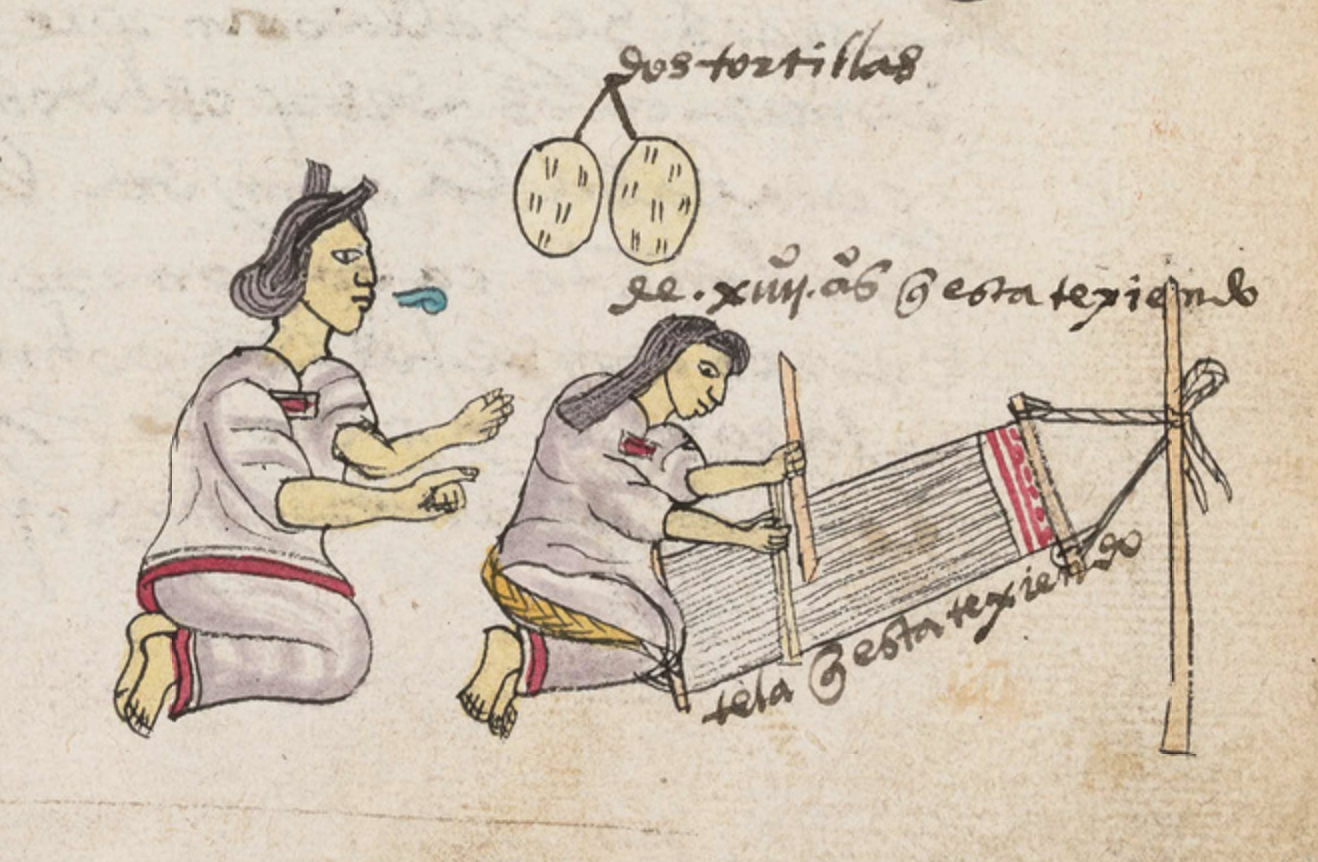 dos tortillas
de . xiiijº . aºs q̃ esta texiendo
tela q̃ esta texiendo